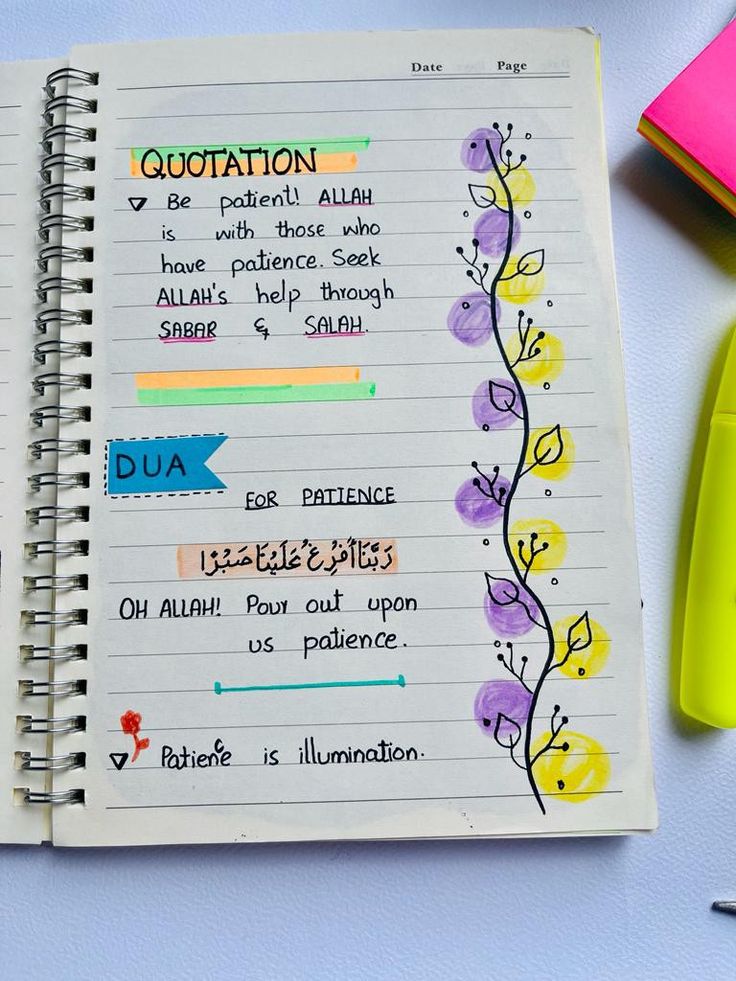 Date Page
QUOTATION
Be patient! ALLAH
is with those who
have patience. Seek
ALLAH's help through
SABAR & SALAH.
DUA
FOR PATIENCE
رَبَّنَا أَفْرِغْ عَلَيْنَا صَبْرًا
OH ALLAH! Pour out upon
us patience.
Patience is illumination.